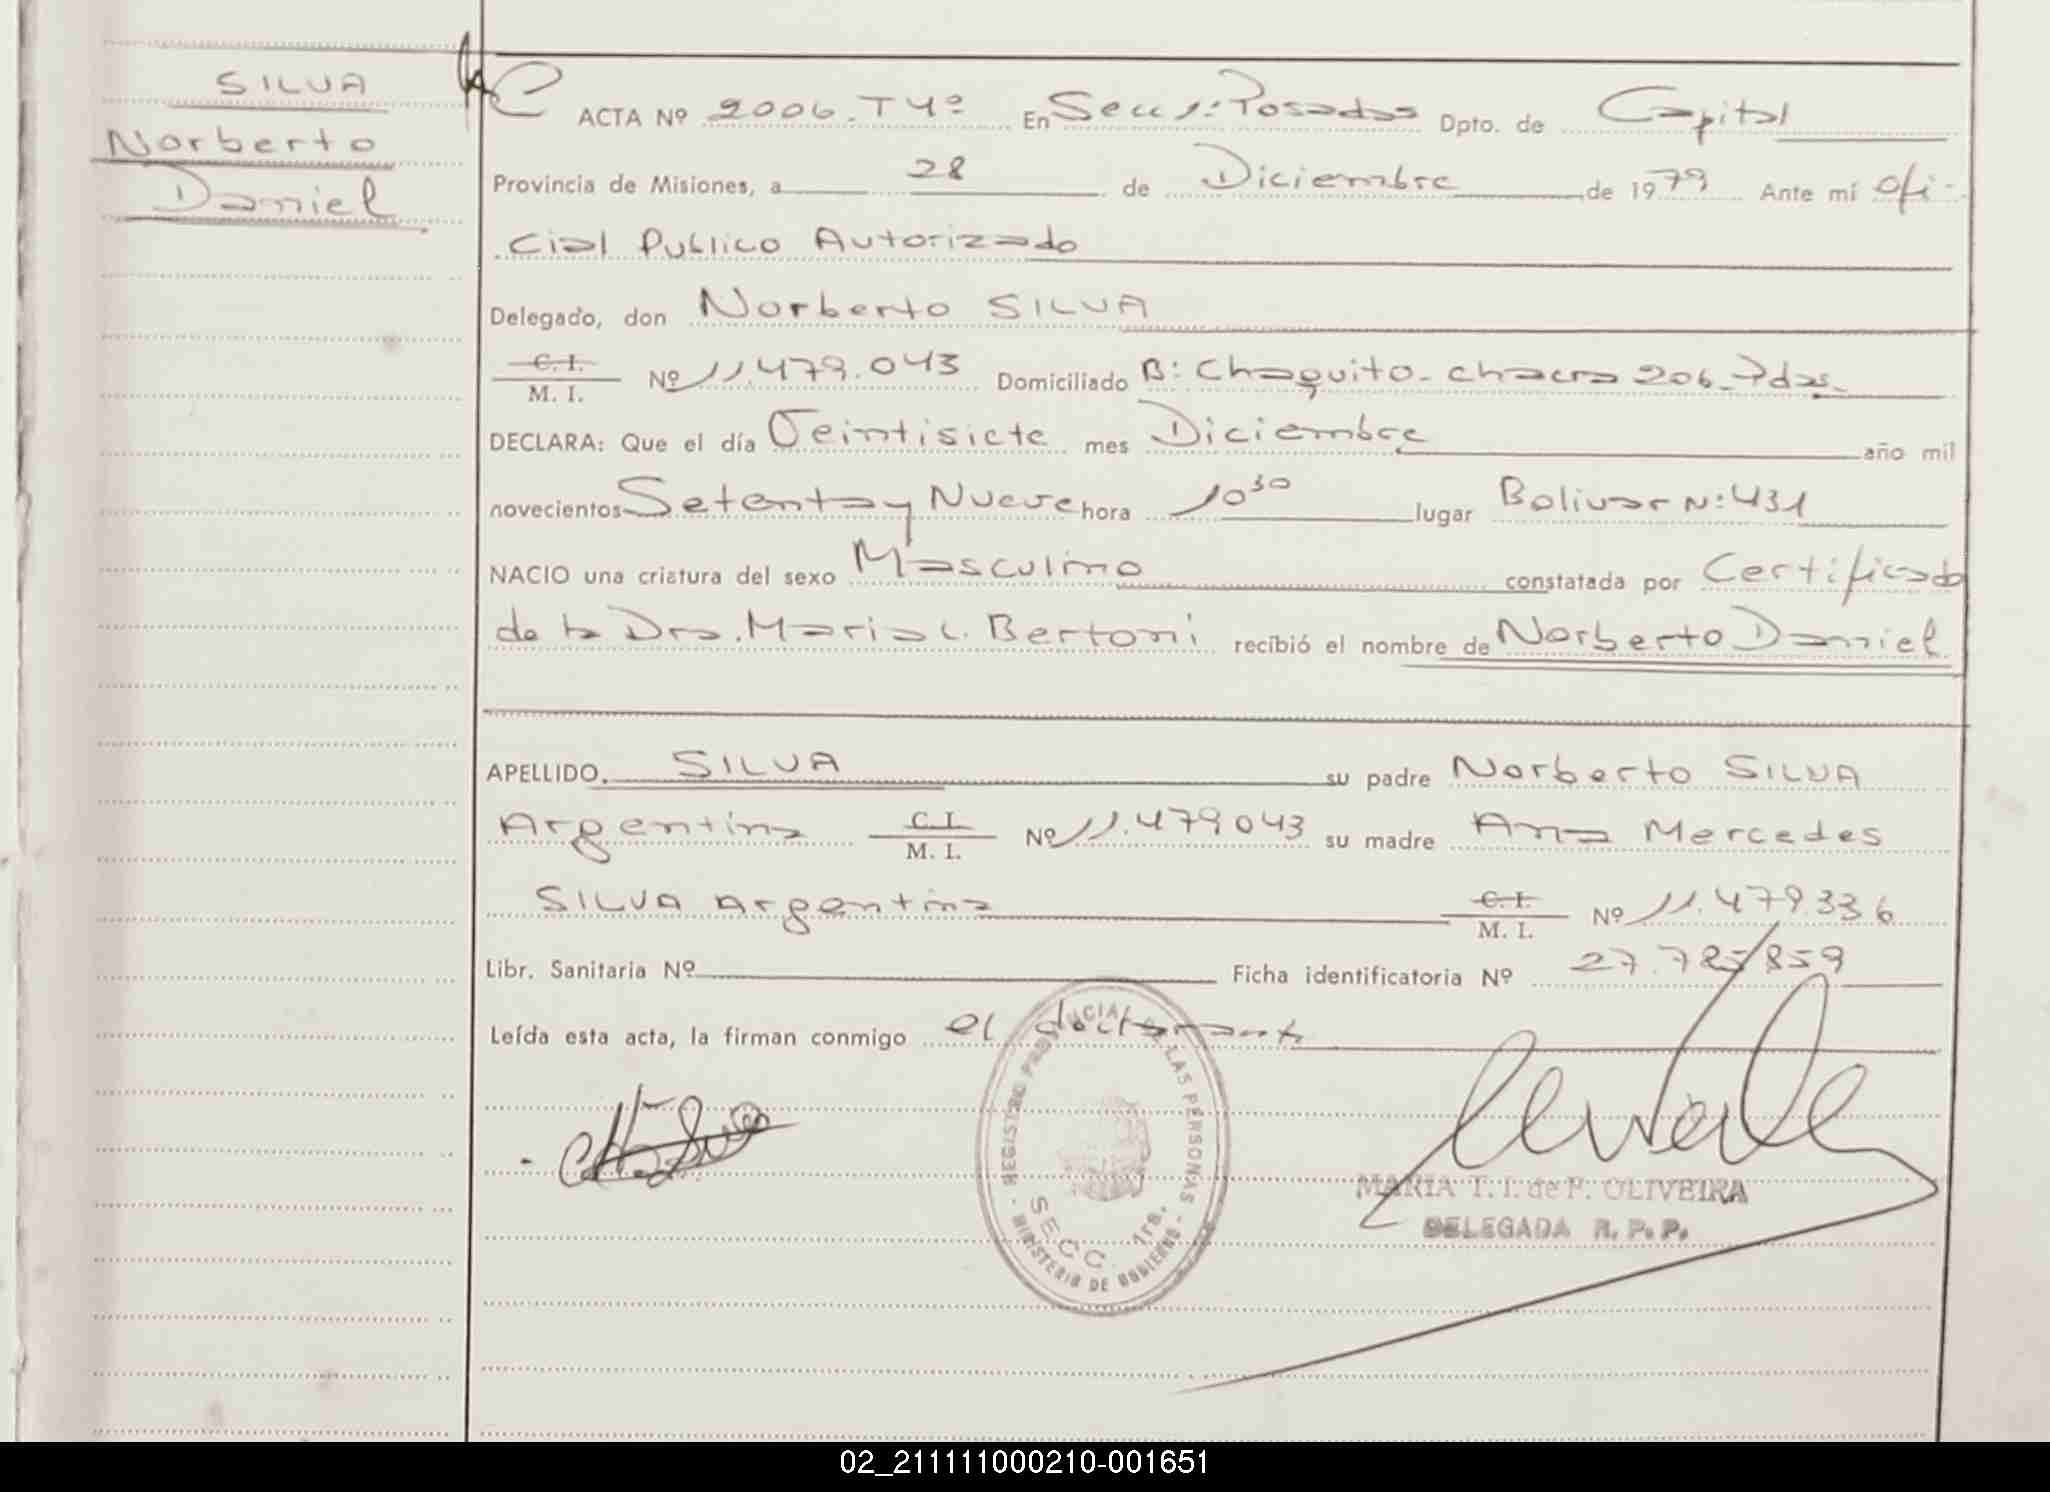 SILVA
Norberto
Daniel
ACTA Nº 2006. T 4º En Secc 1: Posadas Dpto. de Capital
Provincia de Misiones, a 28 de Diciembre de 1979 Ante mí ofi-
cial Publico Autorizado
Delegado, don Norberto SILVA
C. I. / M. I. Nº 11.479.043 Domiciliado B: Chaquito - chacra 206 - Pdas.
DECLARA: Que el día Veintisiete mes Diciembre año mil
novecientos Setenta y Nueve hora 10 30 lugar Bolivar N: 431
NACIO una criatura del sexo Masculino constatada por Certificado
de la Dra. Maria L. Bertoni recibió el nombre de Norberto Daniel
APELLIDO. SILVA su padre Norberto SILVA
Argentina C. I. / M. I. Nº 11.479043 su madre Ana Mercedes
SILVA Argentina C. I. / M. I. Nº 11.479.336
Libr. Sanitaria Nº Ficha identificatoria Nº 27.785859
Leída esta acta, la firman conmigo el doctorante
REGISTRO PROVINCIAL DE LAS PERSONAS
SECC. 1ra.
MINISTERIO DE GOBIERNO
MARIA T. I. de P. OLIVEIRA
DELEGADA R. P. P.
02_211111000210-001651